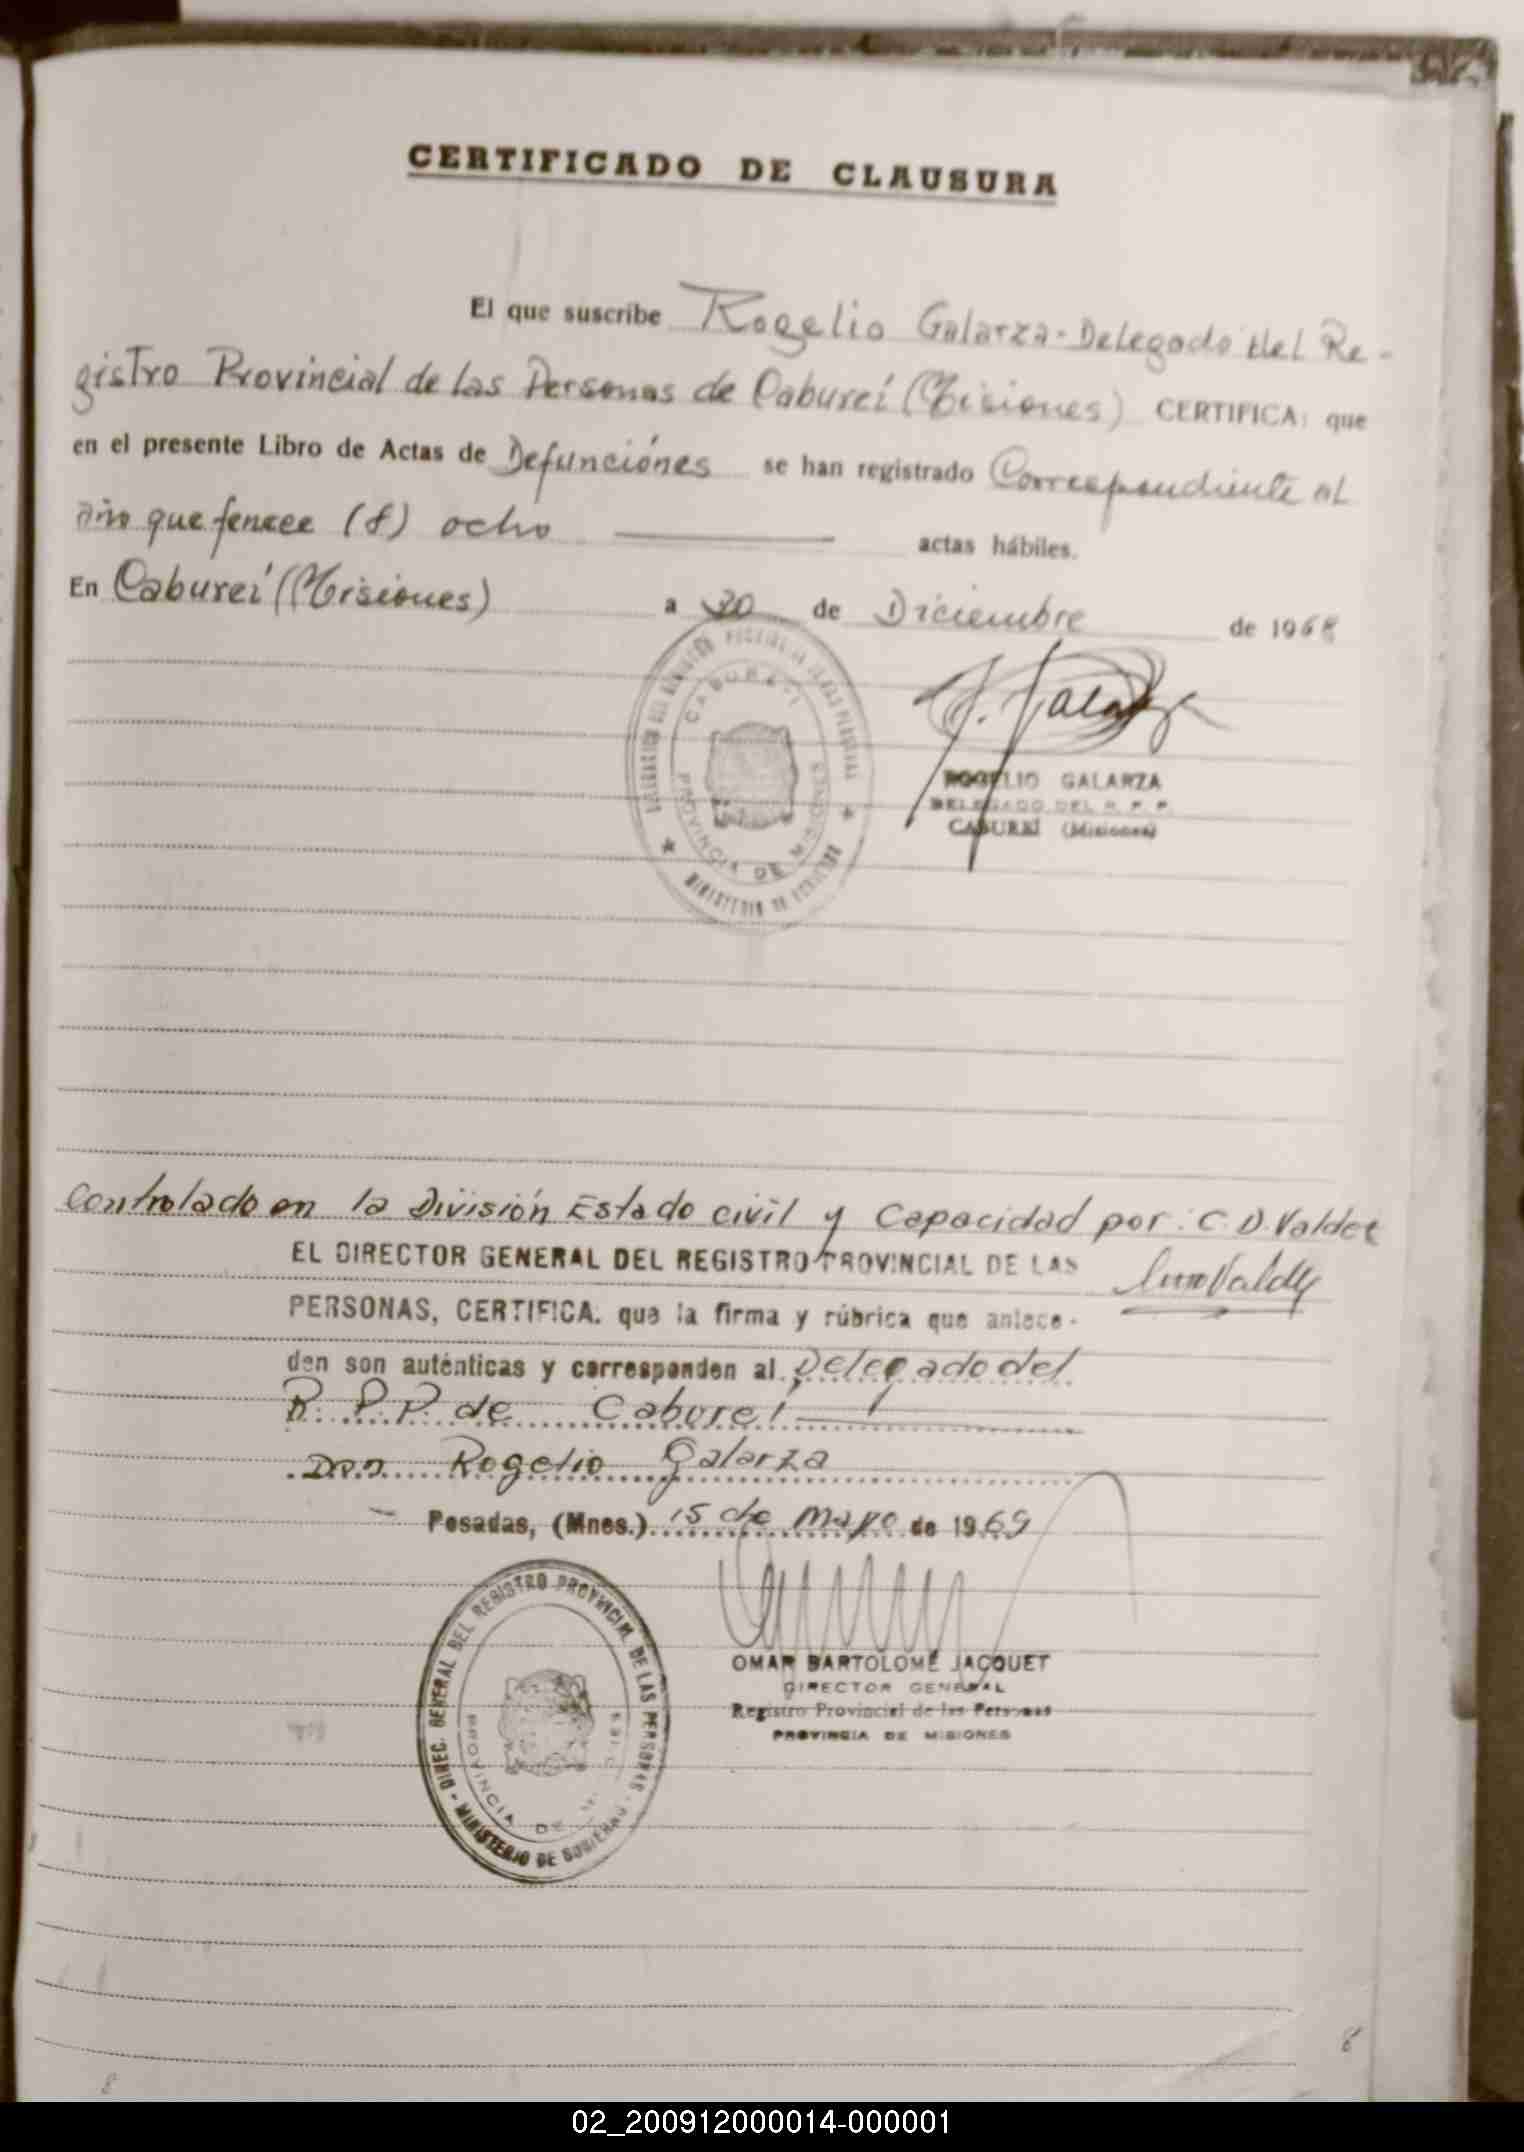 CERTIFICADO DE CLAUSURA
El que suscribe Rogelio Galarza - Delegado del Re-
gistro Provincial de las Personas de Tabureí (Misiones) CERTIFICA: que
en el presente Libro de Actas de Defunciónes se han registrado Correspondiente al
año que fenece (8) ocho actas hábiles.
En Cabureí (Misiones) a 30 de Diciembre de 1968
CABUREI
PROVINCIA DE MISIONES
MINISTERIO DE GOBIERNO
R. Galarza
ROGELIO GALARZA
DELEGADO DEL R. P. P.
CABUREÍ (Misiones)
Controlado en la División Estado civil y Capacidad por: C. D. Valdez
EL DIRECTOR GENERAL DEL REGISTRO PROVINCIAL DE LAS
PERSONAS, CERTIFICA. que la firma y rúbrica que antece-
den son auténticas y corresponden al Delegado del
R. P. P. de Cabureí
Don Rogelio Galarza
Posadas, (Mnes.) 15 de mayo de 1969
DIREC. GENERAL DEL REGISTRO PROVINCIAL DE LAS PERSONAS - MINISTERIO DE GOBIERNO -
PROVINCIA DE
OMAR BARTOLOMÉ JACQUET
DIRECTOR GENERAL
Registro Provincial de las Personas
PROVINCIA DE MISIONES
8
8
02_200912000014-000001